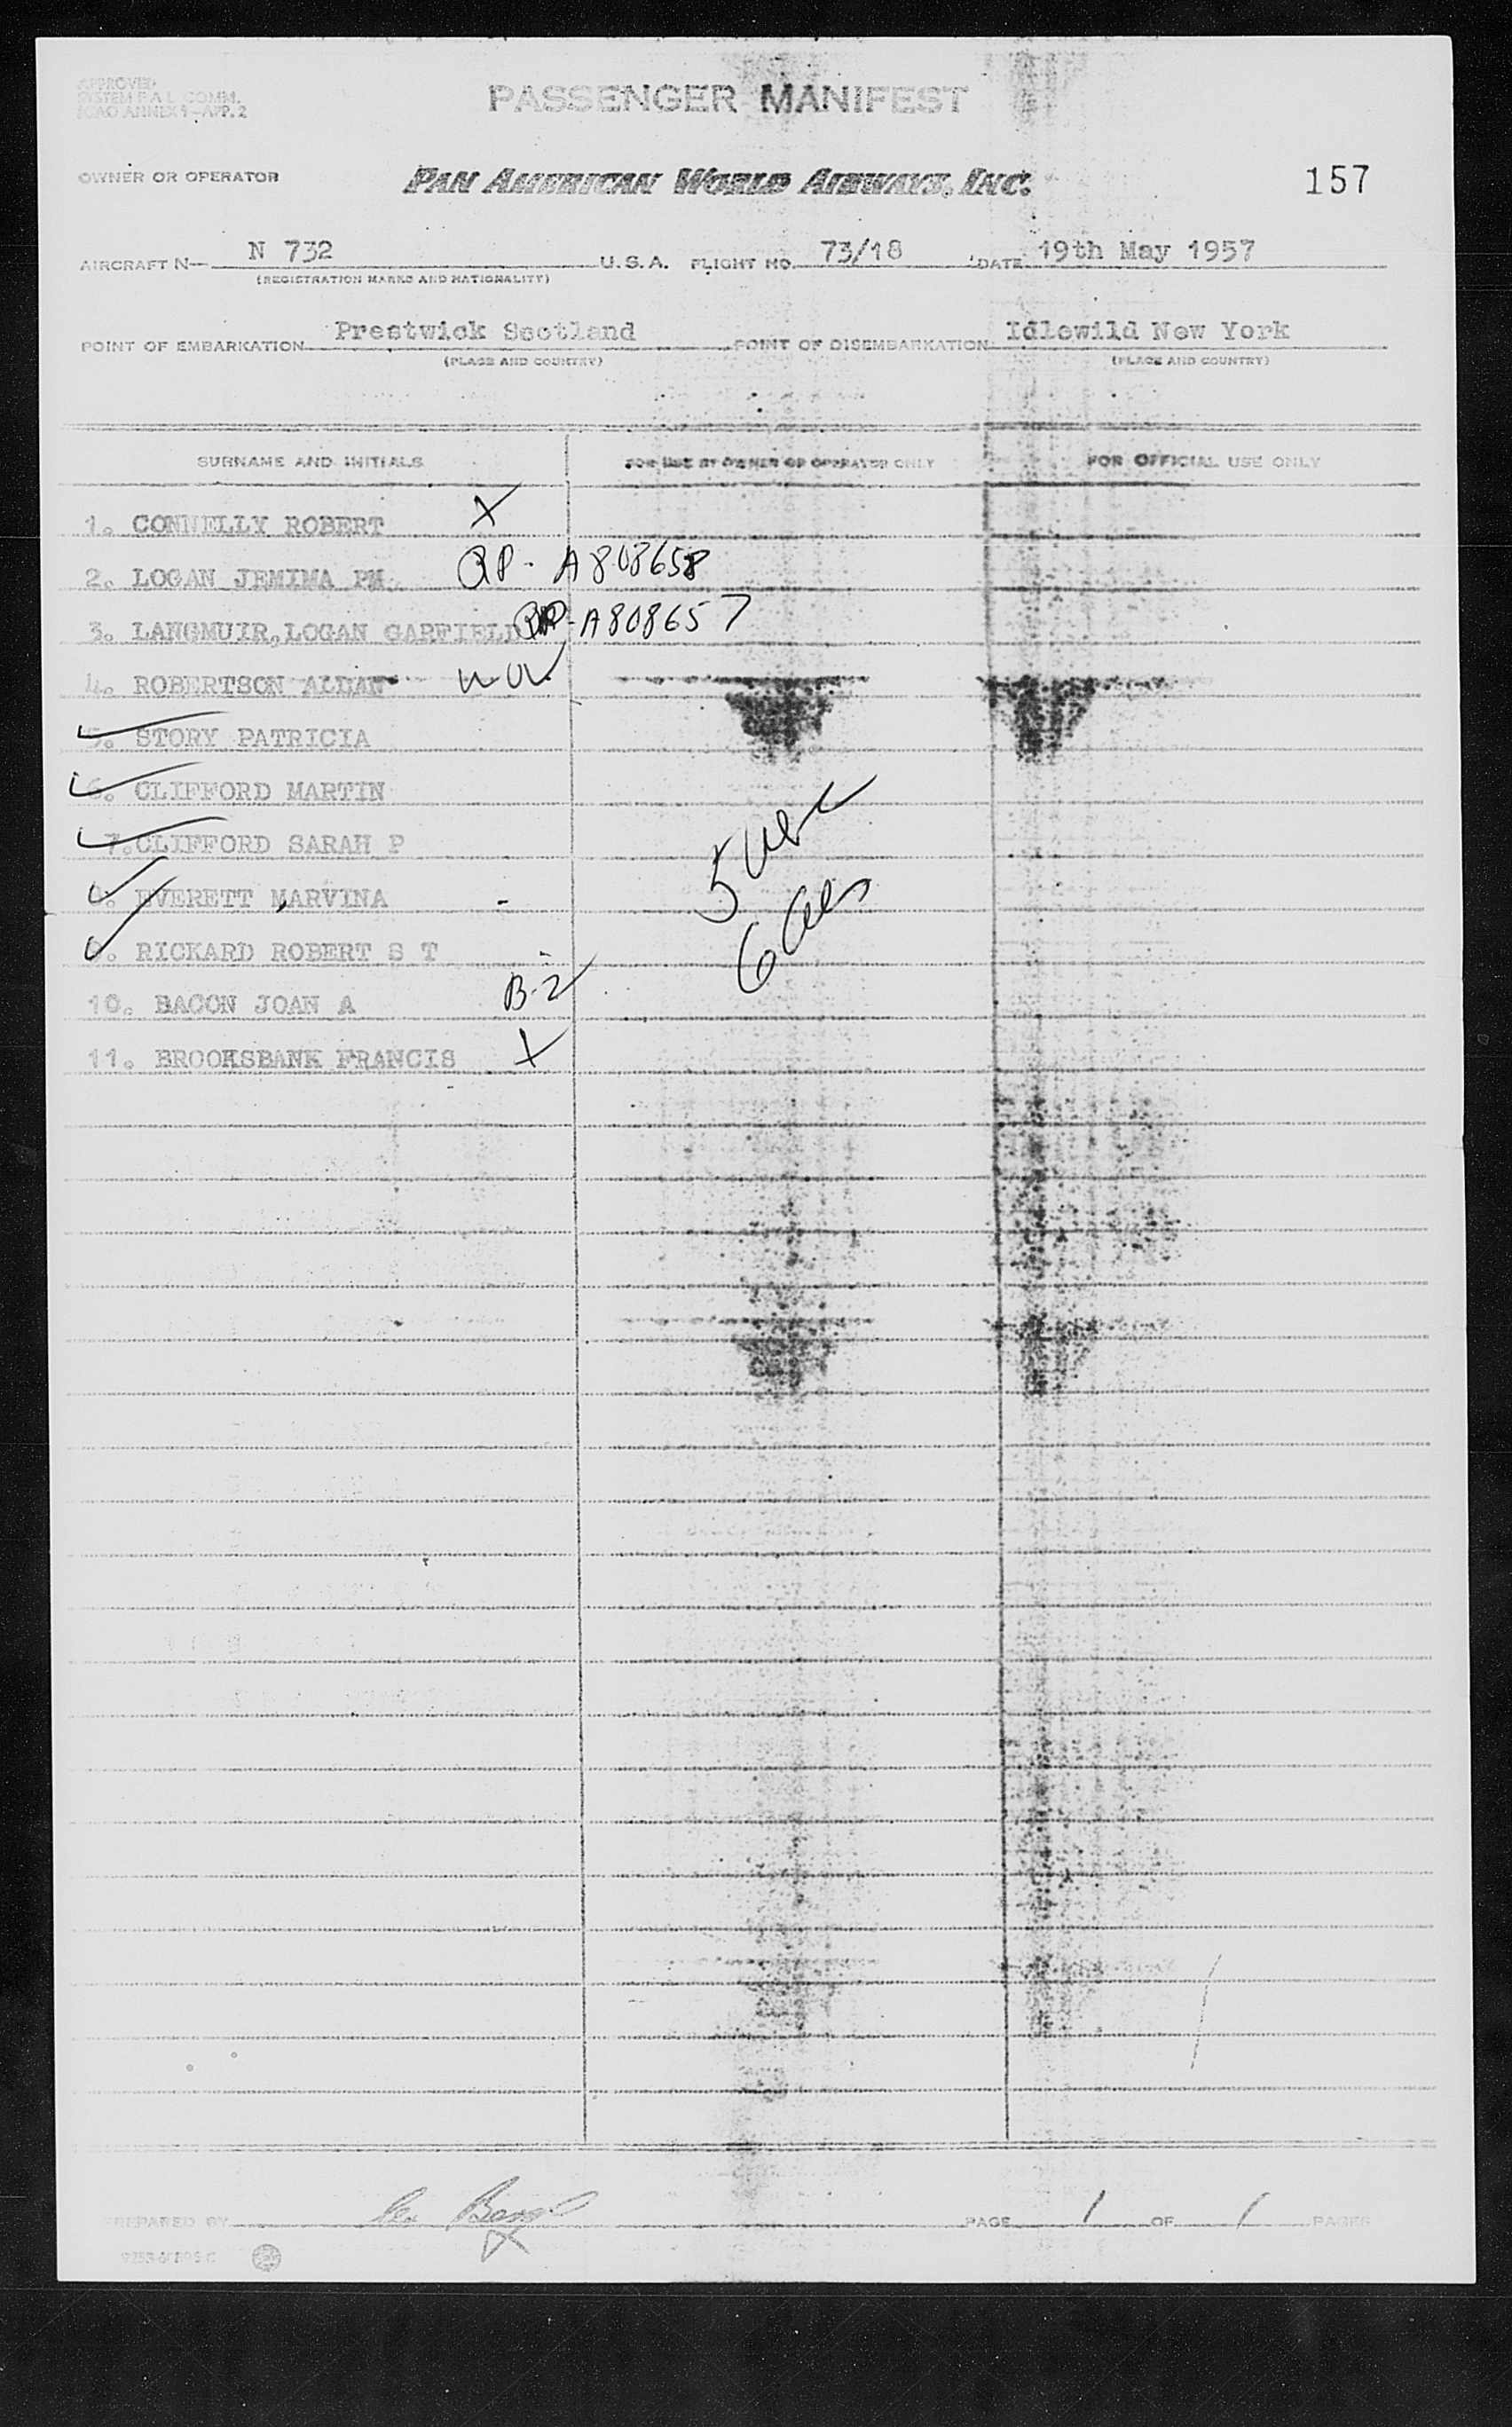 APPROVED
SYSTEM F.A.L. COMM.
ICAO ANNEX 9-APP. 2
PASSENGER MANIFEST
OWNER OR OPERATOR PAN AMERICAN WORLD AIRWAYS, INC. 157
AIRCRAFT N— N 732 U.S.A. FLIGHT NO. 73/18 DATE 19th May 1957
(REGISTRATION MARKS AND NATIONALITY)
POINT OF EMBARKATION Prestwick Scotland POINT OF DISEMBARKATION Idlewild New York
(PLACE AND COUNTRY) (PLACE AND COUNTRY)
SURNAME AND INITIALS FOR USE BY OWNER OR OPERATOR ONLY FOR OFFICIAL USE ONLY
1. CONNELLY ROBERT X
2. LOGAN JEMIMA PM RP- A808658
3. LANGMUIR,LOGAN GARFIELD RP-A808657
4. ROBERTSON ALLAN
5. STORY PATRICIA
6. CLIFFORD MARTIN
7.CLIFFORD SARAH P
8. EVERETT MARVINA -
9. RICKARD ROBERT S T
10. BACON JOAN A B-2
11. BROOKSBANK FRANCIS X
5 usc
6 als
PREPARED BY PAGE 1 OF 1 PAGES